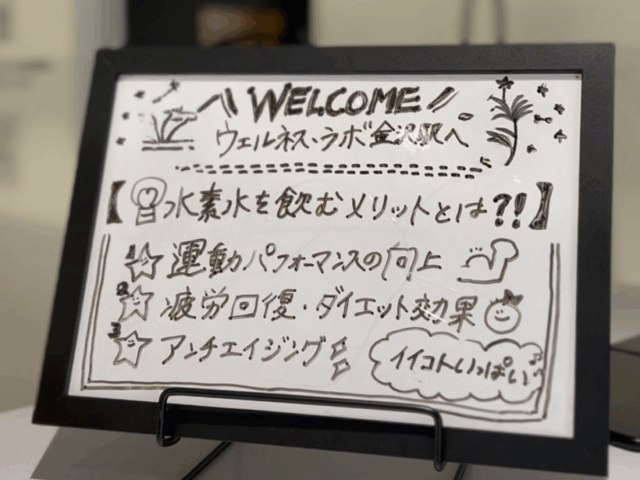 WELCOME
ウェルネス・ラボ金沢駅へ
【水素水を飲むメリットとは?!】
1 運動パフォーマンスの向上
2 疲労回復・ダイエット効果
3 アンチエイジング
イイコトいっぱい